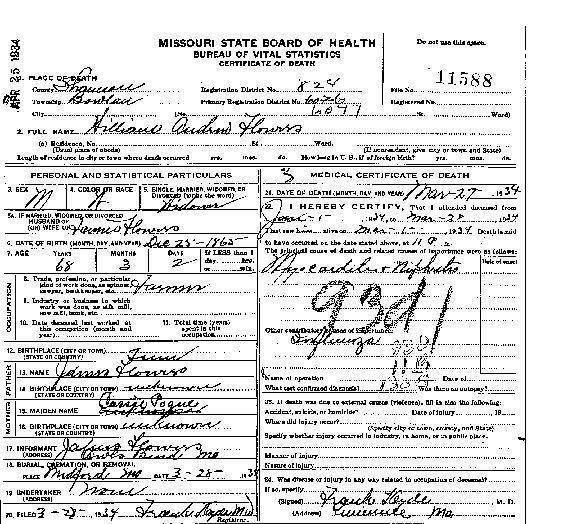 APR 25 1934
MISSOURI STATE BOARD OF HEALTH
BUREAU OF VITAL STATISTICS
CERTIFICATE OF DEATH
Do not use this space.
11588
1. PLACE OF DEATH
County
Township Bowlin
City
Registration District No. 824
Primary Registration District No.
(No.
File No.
Registered No.
St. Ward)
2. FULL NAME William Andrew Flowers
(a) Residence, No. St. Ward.
(Usual place of abode) (If nonresident, give city or town and State)
Length of residence in city or town where death occurred yrs. mos. ds. How long in U. S., if of foreign birth? yrs. mos. ds.
PERSONAL AND STATISTICAL PARTICULARS
3. SEX M
4. COLOR OR RACE W
5. SINGLE, MARRIED, WIDOWED, OR DIVORCED (write the word) Widower
5A. IF MARRIED, WIDOWED, OR DIVORCED
HUSBAND OF
(OR) WIFE OF Flowers
6. DATE OF BIRTH (MONTH, DAY, AND YEAR) Dec 25-1865
7. AGE YEARS 68 MONTHS 3 DAYS 2 If LESS than 1 day, hrs. or min.
OCCUPATION
8. Trade, profession, or particular kind of work done, as spinner, sawyer, bookkeeper, etc. Farmer
9. Industry or business in which work was done, as silk mill, saw mill, bank, etc.
10. Date deceased last worked at this occupation (month and year)
11. Total time (years) spent in this occupation
12. BIRTHPLACE (CITY OR TOWN) Tenn
(STATE OR COUNTRY)
FATHER
13. NAME James Flowers
14. BIRTHPLACE (CITY OR TOWN) unknown
(STATE OR COUNTRY)
MOTHER
15. MAIDEN NAME Pogue
16. BIRTHPLACE (CITY OR TOWN) unknown
(STATE OR COUNTRY)
17. INFORMANT James Flowers
(ADDRESS) Mo
18. BURIAL, CREMATION, OR REMOVAL
PLACE Mo DATE 3-28- 1934
19. UNDERTAKER None
(ADDRESS)
20. FILED 3-28- 1934 Frank Hyde M.D.
Registrar.
3
MEDICAL CERTIFICATE OF DEATH
21. DATE OF DEATH (MONTH, DAY, AND YEAR) Mar-27 1934
22. I HEREBY CERTIFY, That I attended deceased from
Jan-1- 1934, to Mar-28 1934
I last saw alive on Mar-1- 1934 Death is said
to have occurred on the date stated above, at
The principal cause of death and related causes of importance were as follows:
Date of onset
Myocarditis & Nephritis
Other contributory causes of importance:
Influenza
Name of operation Date of
What test confirmed diagnosis? Was there an autopsy?
23. If death was due to external causes (violence), fill in also the following:
Accident, suicide, or homicide? Date of injury 19
Where did injury occur?
(Specify city or town, county, and State)
Specify whether injury occurred in industry, in home, or in public place.
Manner of injury
Nature of injury
24. Was disease or injury in any way related to occupation of deceased?
If so, specify
(Signed) Frank Hyde M. D.
(Address) Mo